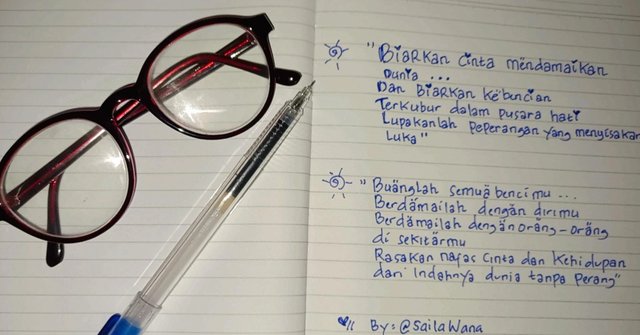 "Biarkan cinta mendamaikan
Dunia ...
Dan Biarkan kebencian
Terkubur dalam pusara hati
Lupakanlah peperangan yang menyisakan
Luka"
"Buänglah semuä bencimu ...
Berdämailah dengän dirimu
Berdämailah dengän oräng-oräng
di sekitärmu
Rasakan nafas cinta dan kehidupan
dari Indahnya dunia tanpa perang"
By: @sailawana